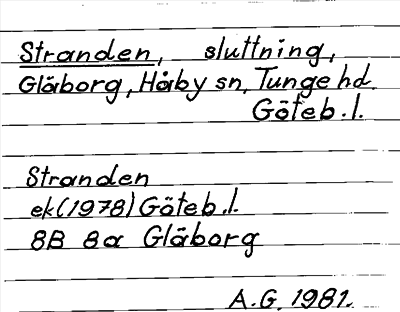 Stranden, sluttning,
Glåborg, Håby sn, Tunge hd.
Göteb. l.
Stranden
ek (1978) Göteb. l.
8B 8a Glåborg
A.G. 1981.